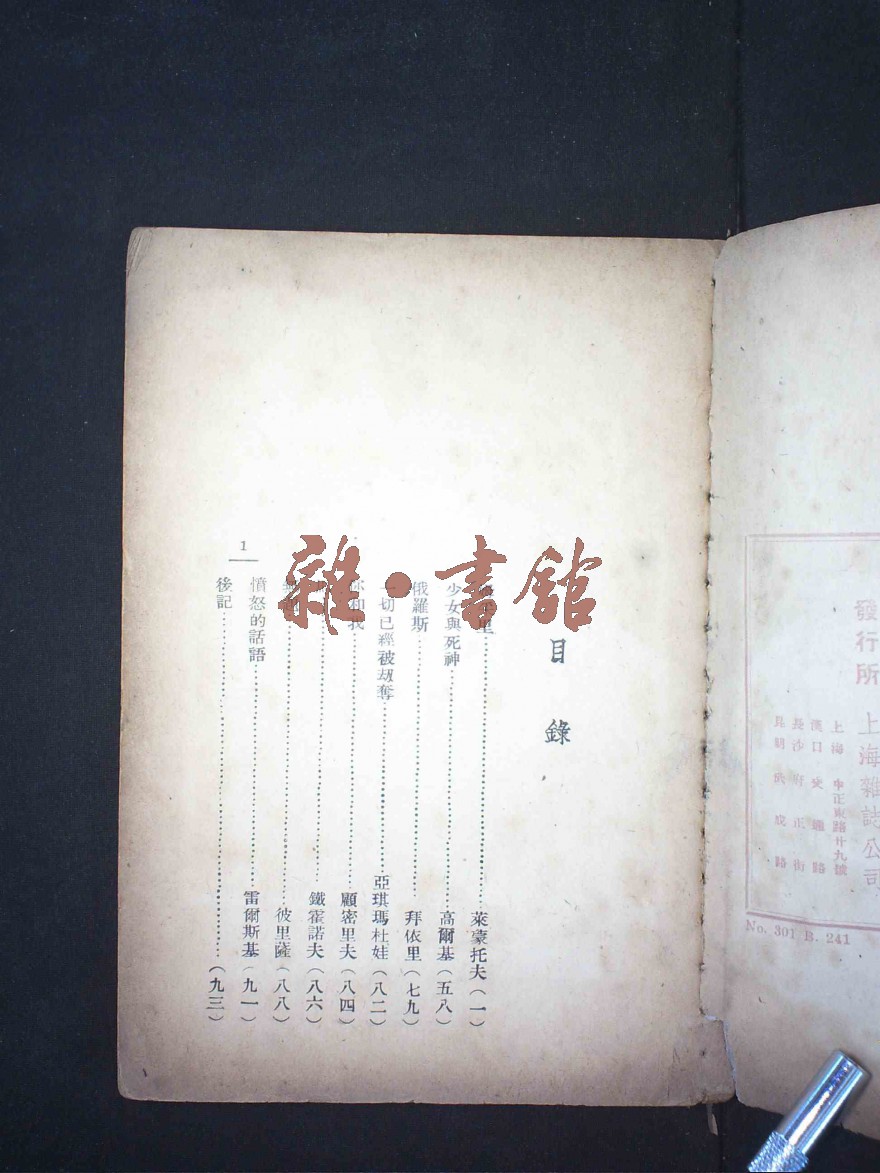 發行所 上海雜誌公司
上海 中正東路廿九號
漢口 交通路
長沙 府正街
昆明 武成路
No. 301 B. 241
目錄
萊蒙托夫(一)
少女與死神 高爾基(五八)
俄羅斯 拜依里(七九)
一切已經被劫奪 亞琪瑪杜娃(八二)
你和我 顧密里夫(八四)
鐵霍諾夫(八六)
彼里薩(八八)
憤怒的話語 雷爾斯基(九一)
後記(九三)
1
雜·書館